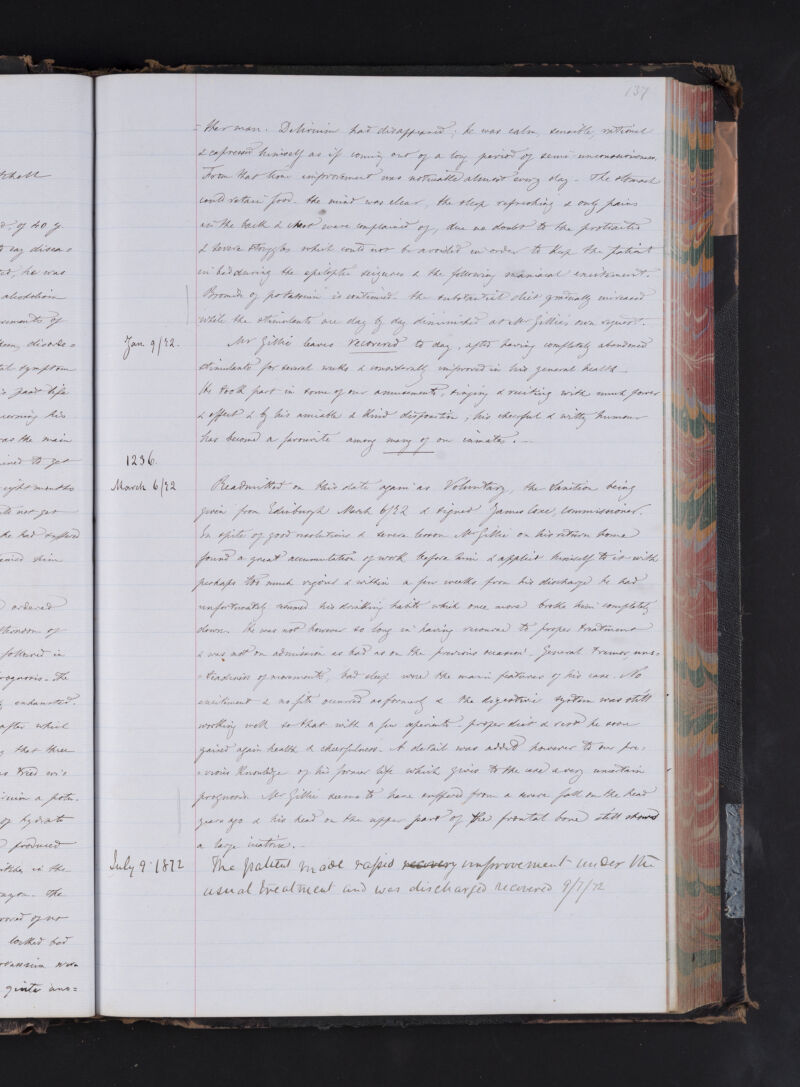 137
= ther man. Delirium had disappeared; he was calm, sensible, rational
& expressed himself as if coming out of a long period of semi-unconsciousness.
From that time improvement was noticeable almost every day. The stomach
could retain food. the mind was clear, the sleep refreshing & only pains
in the back & chest were complained of, due no doubt to the protracted
& severe struggles which could not be avoided in order to keep the patient
in bed during the epileptic seizures & the following maniacal excitement.
Bromide of potassium is continued. the substantial diet gradually increased
while the stimulants are day by day diminished at Mr Gillie's own request.
Jan 9/72. Mr Gillie leaves recovered to day, after having completely abandoned
stimulants for several weeks & considerably improved in his general health.
He took part in some of our amusements, singing & reciting with much power
& effect & by his amiable & kind disposition, his cheerful & witty humour
has become a favourite among many of our inmates.
1236.
March 6/72 Readmitted on this date again as Voluntary, the Sanction being
given from Edinburgh March 6/72 & signed James Coxe, Commissioner.
In spite of good resolutions & severe lesson Mr Gillie on his return home
found a great accumulation of work before him & applied himself to it with
perhaps too much vigour & within a few weeks from his discharge he had
unfortunately resumed his drinking habits which once more broke him completely
down. He was not however so long in having recourse to proper treatment
& was not on admission as bad as on the previous occasion. General tremor, uns-
= teadiness of movements, bad sleep were the main features of his case. No
excitement & no fits occurred as formerly & the digestive system was still
working well so that with a few aperients, proper diet & rest he soon
gained again health & cheerfulness. A detail was added however to our pre-
= vious knowledge of his former life which gives to the case a very uncertain
prognosis. Mr Gillie seems to have suffered from a severe fall on the head
years ago & his head on the upper part of the frontal bone still showed
a large cicatrix.
July 9. 1872 The patient made rapid recovery improvement under the
usual treatment and was discharged recovered 9/7/72